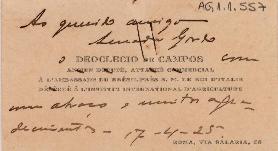 AG.1.1.557
Ao querido amigo
Gordo
o DEOCLECIO DE CAMPOS com
ANCIEN DÉPUTÉ, ATTACHÉ COMMERCIAL
À L'AMBASSADE DU BRÉSIL PRÈS S. M. LE ROI D'ITALIE
DÉLÉGUÉ À L'INSTITUT INTERNATIONAL D'AGRICULTURE
um abraço e muitos agra-
decimentos - 17-4-25
ROMA, VIA SALARIA,